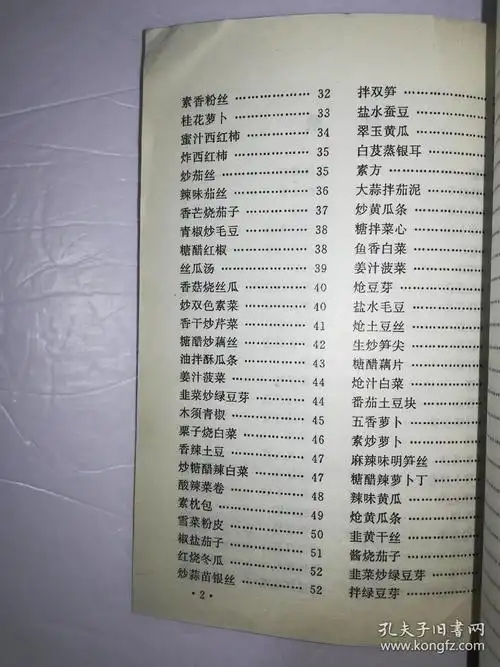 素香粉丝 ………… 32
桂花萝卜 ………… 33
蜜汁西红柿 ………… 34
炸西红柿 ………… 35
炒茄丝 ………… 35
辣味茄丝 ………… 36
香芒烧茄子 ………… 37
青椒炒毛豆 ………… 38
糖醋红椒 ………… 38
丝瓜汤 ………… 39
香菇烧丝瓜 ………… 40
炒双色素菜 ………… 40
香干炒芹菜 ………… 41
糖醋炒藕丝 ………… 42
油拌酥瓜条 ………… 43
姜汁菠菜 ………… 44
韭菜炒绿豆芽 ………… 44
木须青椒 ………… 45
栗子烧白菜 ………… 46
香辣土豆 ………… 47
炒糖醋辣白菜 ………… 47
酸辣菜卷 ………… 48
素枕包 ………… 49
雪菜粉皮 ………… 50
椒盐茄子 ………… 51
红烧冬瓜 ………… 52
炒蒜苗银丝 ………… 52
·2·
拌双笋 …………
盐水蚕豆 …………
翠玉黄瓜 …………
白芨蒸银耳 …………
素方 …………
大蒜拌茄泥 …………
炒黄瓜条 …………
糖拌菜心 …………
鱼香白菜 …………
姜汁菠菜 …………
炝豆芽 …………
盐水毛豆 …………
炝土豆丝 …………
生炒笋尖 …………
糖醋藕片 …………
炝汁白菜 …………
番茄土豆块 …………
五香萝卜 …………
素炒萝卜 …………
麻辣味明笋丝 …………
糖醋辣萝卜丁 …………
辣味黄瓜 …………
炝黄瓜条 …………
韭黄干丝 …………
酱烧茄子 …………
韭菜炒绿豆芽 …………
拌绿豆芽 …………
孔夫子旧书网
www.kongfz.com